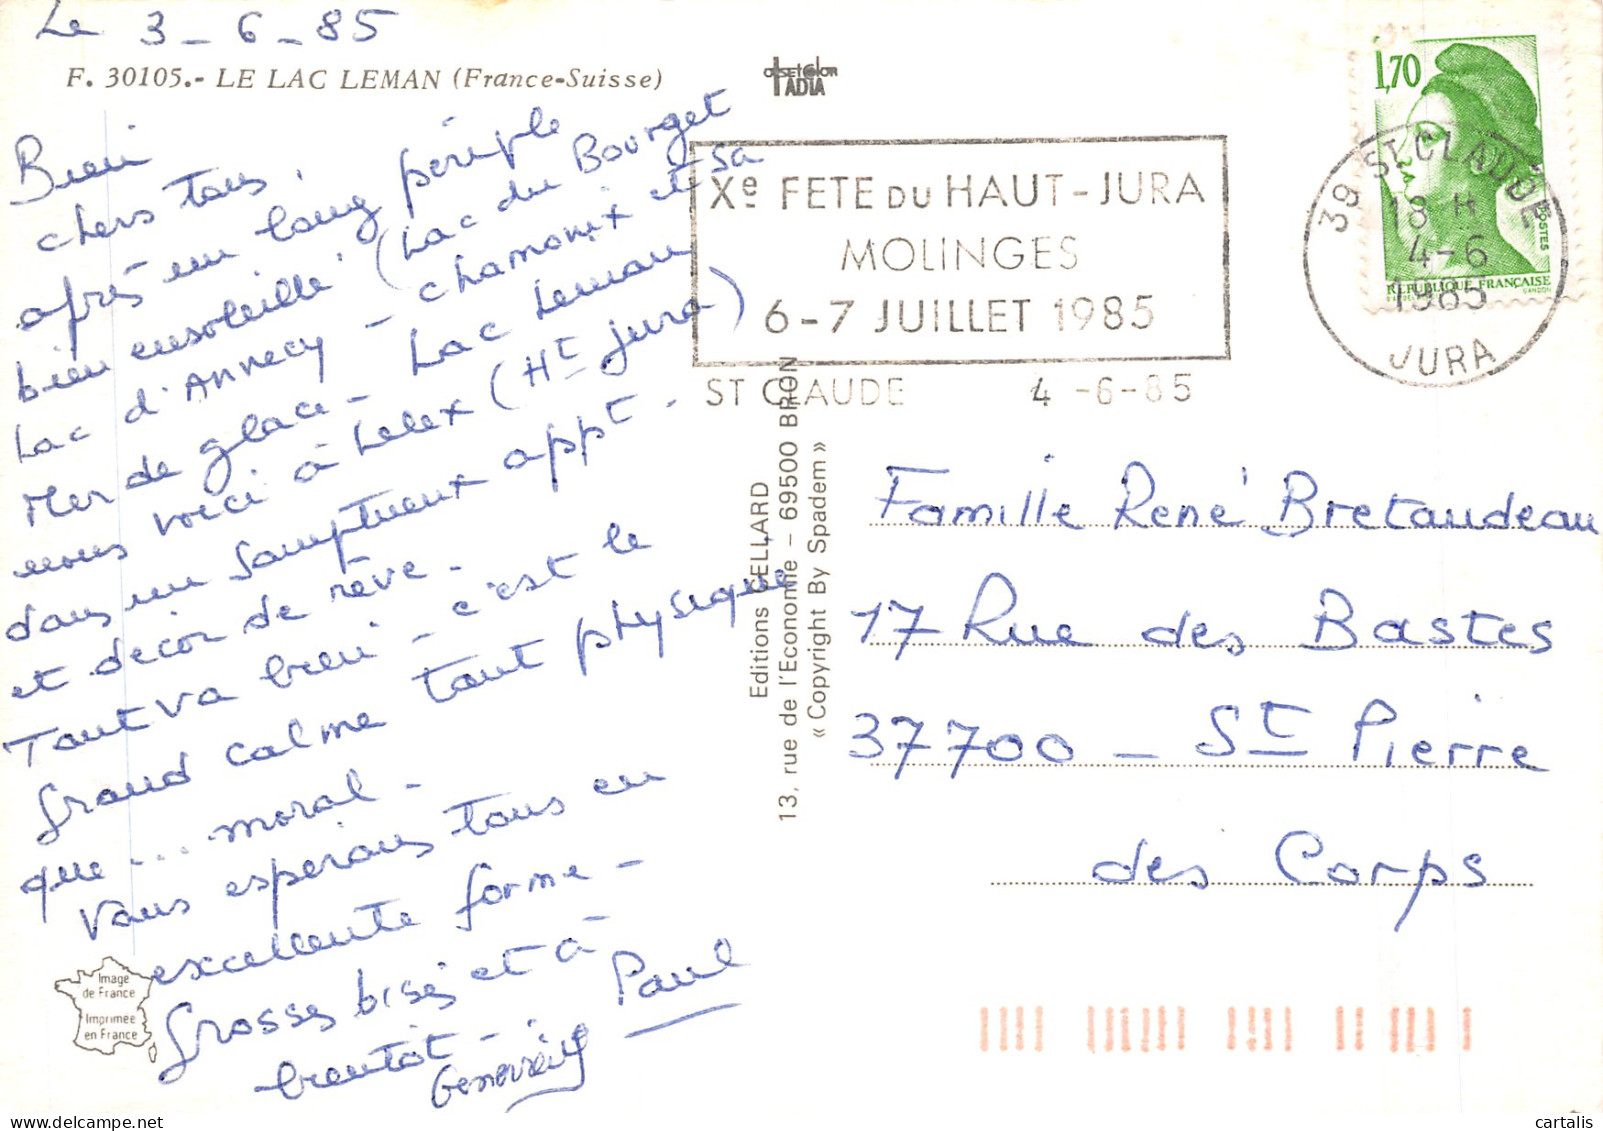 Le 3-6-85
F. 30105.- LE LAC LEMAN (France-Suisse)
Bien
chers tous,
après un long périple
bien ensoleillé (Lac du Bourget
Lac d'Annecy - chamonix et sa
Mer de glace - Lac Leman
nous voici à Lelex (Ht jura)
dans un somptueux appt -
et décor de rêve.
Tout va bien - c'est le
grand calme tant physique
que ... moral -
Vous espérons tous en
excellente forme -
grosses bises et à
bientôt -
Geneviève Paul
Image
de France
Imprimée
en France
OFFSETCOLOR
IADIA
Editions CELLARD
13, rue de l'Economie - 69500 BRON
« Copyright By Spadem »
Xe FETE DU HAUT-JURA
MOLINGES
6-7 JUILLET 1985
ST CLAUDE 4 -6-85
1,70
POSTES
REPUBLIQUE FRANÇAISE
GANDON
39 ST CLAUDE
18 H
4-6
1985
JURA
Famille René Bretaudeau
17 Rue des Bastes
37700 - St Pierre
des Corps
delcampe.net
cartalis